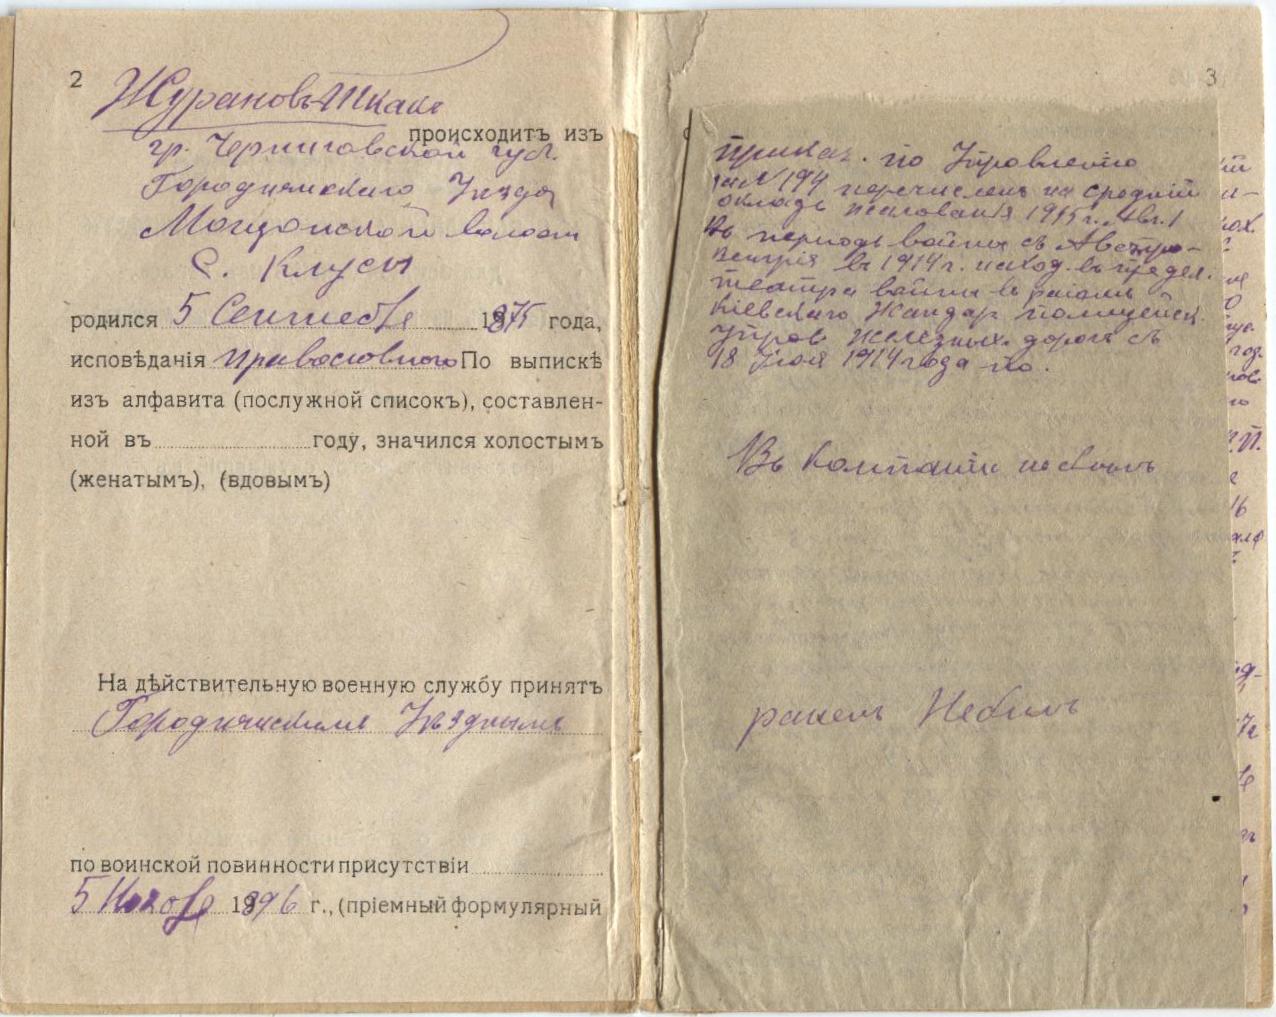 2
3
происходитъ изъ
гр. Черниговской губ.
Городнянскаго Уѣзда
волости
с. Клусы
родился 5 Сентября 1875 года,
исповѣданія православного По выпискѣ
изъ алфавита (послужной списокъ), составлен-
ной въ году, значился холостымъ
(женатымъ), (вдовымъ)
На дѣйствительную военную службу принятъ
Городнянскимъ Уѣзднымъ
по воинской повинности присутствіи
5 Ноября 1896 г., (пріемный формулярный
Приказ. по Управленію
за № 194 перечисленъ на средній
окладъ жалованія 1915 г.
Въ періодъ войны съ Австро-
Венгріей въ 1914 г. наход. въ предел.
театра войны въ раіонѣ
Кіевскаго Жандар. полицейск.
Управ. Железных. дорогъ съ
18 Іюля 1914 года по.
Въ компаніи не былъ
раненъ Небылъ